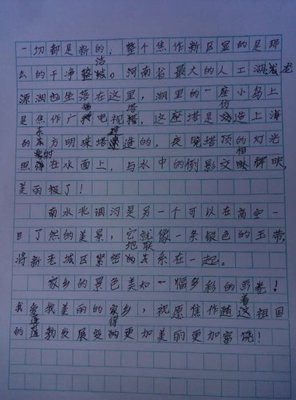 一切都是新的，整个焦作新区显的是那
么的干净整洁。河南省最大的人工湖龙
源湖也坐落在这里，湖里的一座小岛上
是焦作广播电视塔，这座塔是仿造上海
的东方明珠塔建造的，夜晚塔顶的灯光
照射在水面上，与水中的倒影交相辉映，
美丽极了！
南水北调河是另一个可以在高空一
目了然的美景，它就像一条银色的玉带，
将新老城区紧密地联系在一起。
家乡的景色美如一幅多彩的画卷！
我爱我美丽的家乡，祝愿焦作随着这祖国
的蓬勃发展变得更加美丽更加富饶！